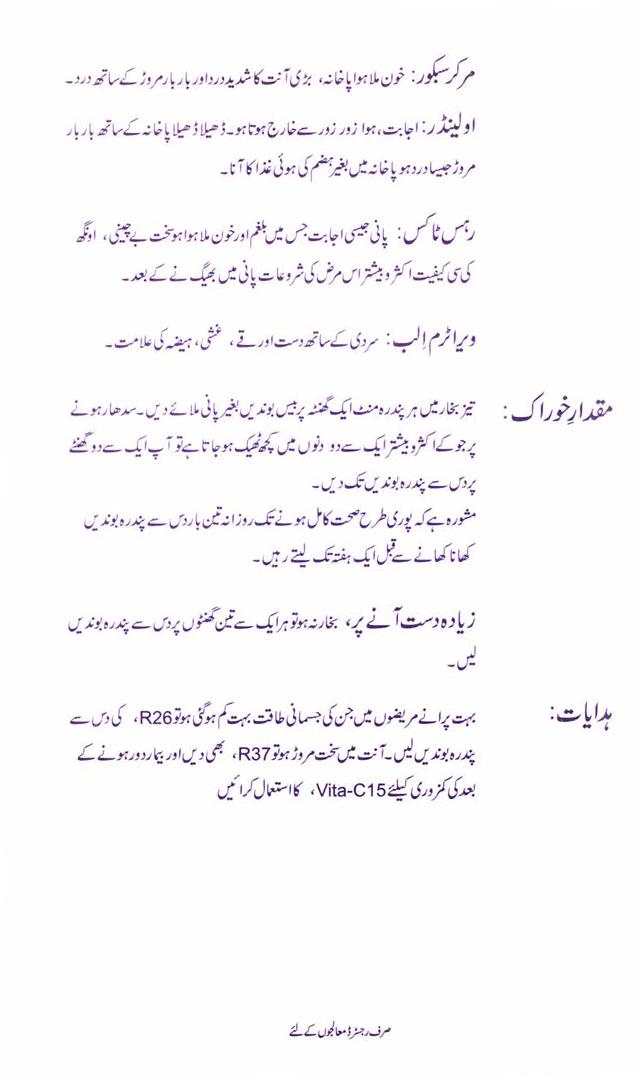 مرکرسبکور: خون ملا ہوا پاخانہ، بڑی آنت کا شدید درد اور بار بار مروڑ کے ساتھ درد۔
اولینڈر: اجابت، ہوا زور زور سے خارج ہوتا ہو۔ ڈھیلا ڈھیلا پاخانہ کے ساتھ بار بار
مروڑ جیسا درد ہو پاخانہ میں بغیر ہضم کی ہوئی غذا کا آنا۔
رہس ٹاکس: پانی جیسی اجابت جس میں بلغم اور خون ملا ہوا ہو سخت بے چینی، اونگھ
کی سی کیفیت اکثر و بیشتر اس مرض کی شروعات پانی میں بھیگ نے کے بعد۔
ویراٹرم اِلب: سردی کے ساتھ دست اور قے، غشی، ہیضہ کی علامت۔
مقدارِ خوراک: تیز بخار میں ہر پندرہ منٹ ایک گھنٹہ پر بیس بوندیں بغیر پانی ملائے دیں۔ سدھار ہونے
پر جو کے اکثر و بیشتر ایک سے دو دنوں میں کچھ ٹھیک ہو جاتا ہے تو آپ ایک سے دو گھنٹے
پر دس سے پندرہ بوندیں تک دیں۔
مشورہ ہے کہ پوری طرح صحت کامل ہونے تک روزانہ تین بار دس سے پندرہ بوندیں
کھانا کھانے سے قبل ایک ہفتہ تک لیتے رہیں۔
زیادہ دست آنے پر، بخار نہ ہو تو ہر ایک سے تین گھنٹوں پر دس سے پندرہ بوندیں
لیں۔
ہدایات: بہت پرانے مریضوں میں جن کی جسمانی طاقت بہت کم ہو گئی ہو تو R26، کی دس سے
پندرہ بوندیں لیں۔ آنت میں سخت مروڑ ہو تو R37، بھی دیں اور بیمار دور ہونے کے
بعد کی کمزوری کیلئے Vita-C15، کا استعمال کرائیں
صرف رجسٹرڈ معالجوں کے لئے